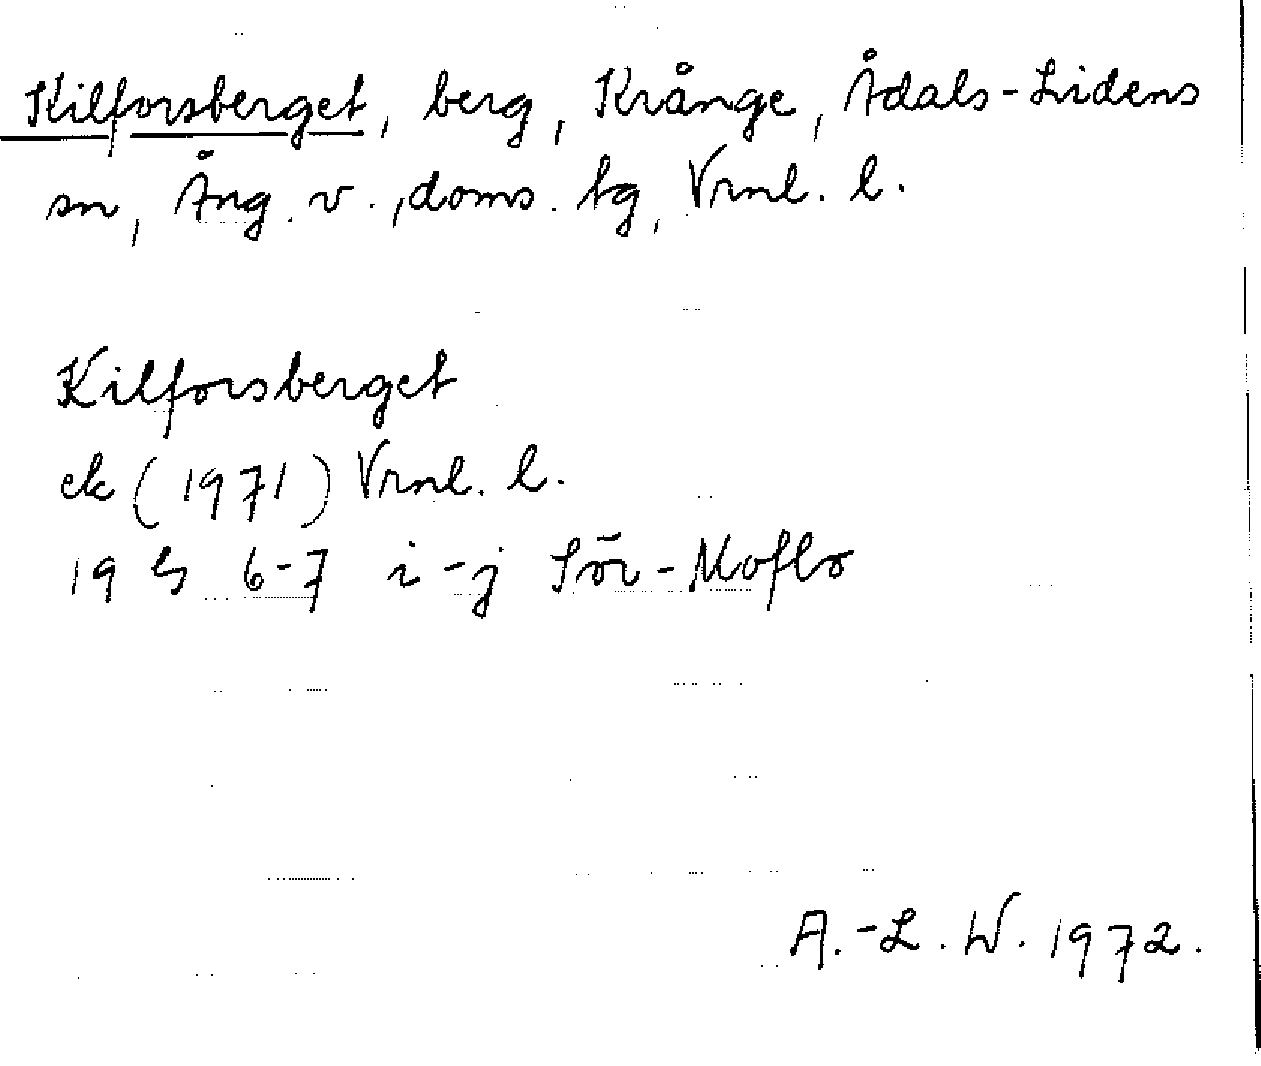 Kilforsberget, berg, Krånge, Ådals-Lidens
sn, Ång. v., doms. tg, Vrnl. l.
Kilforsberget
ek (1971) Vrnl. l.
19 G 6-7 i-j Sör-Moflo
A.-L. W. 1972.